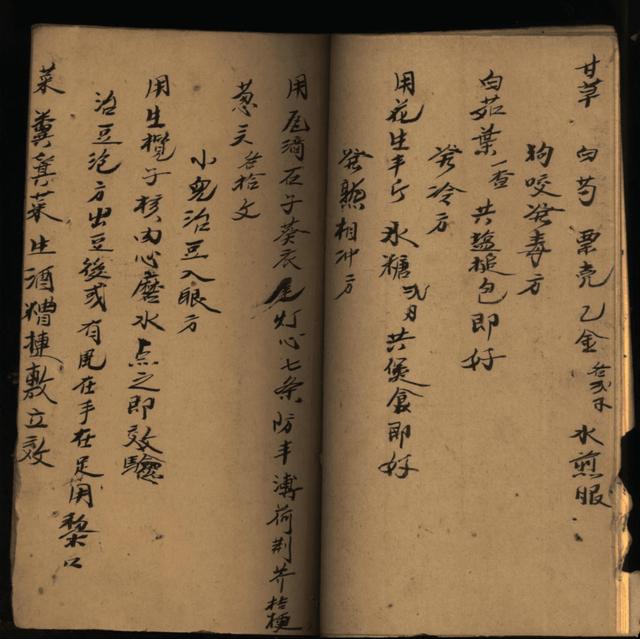 甘草 白芍 栗壳 乙金 各弍戋 水煎服
狗咬發毒方
白茄葉一查 共塩搥包即好
發冷方
用花生半斤 氷糖弍月 共煲食即好
發熱相冲方
用 滴石子葵衣 灯心七条 防丰 薄荷 荆芥 桔梗
葱三 各拾文
小兒治豆入眼方
用生欖子核内心磨水点之即效驗
治豆泡方出豆後或有風在手在足用黎口
菜 糞箕菜生酒糟捶敷立效